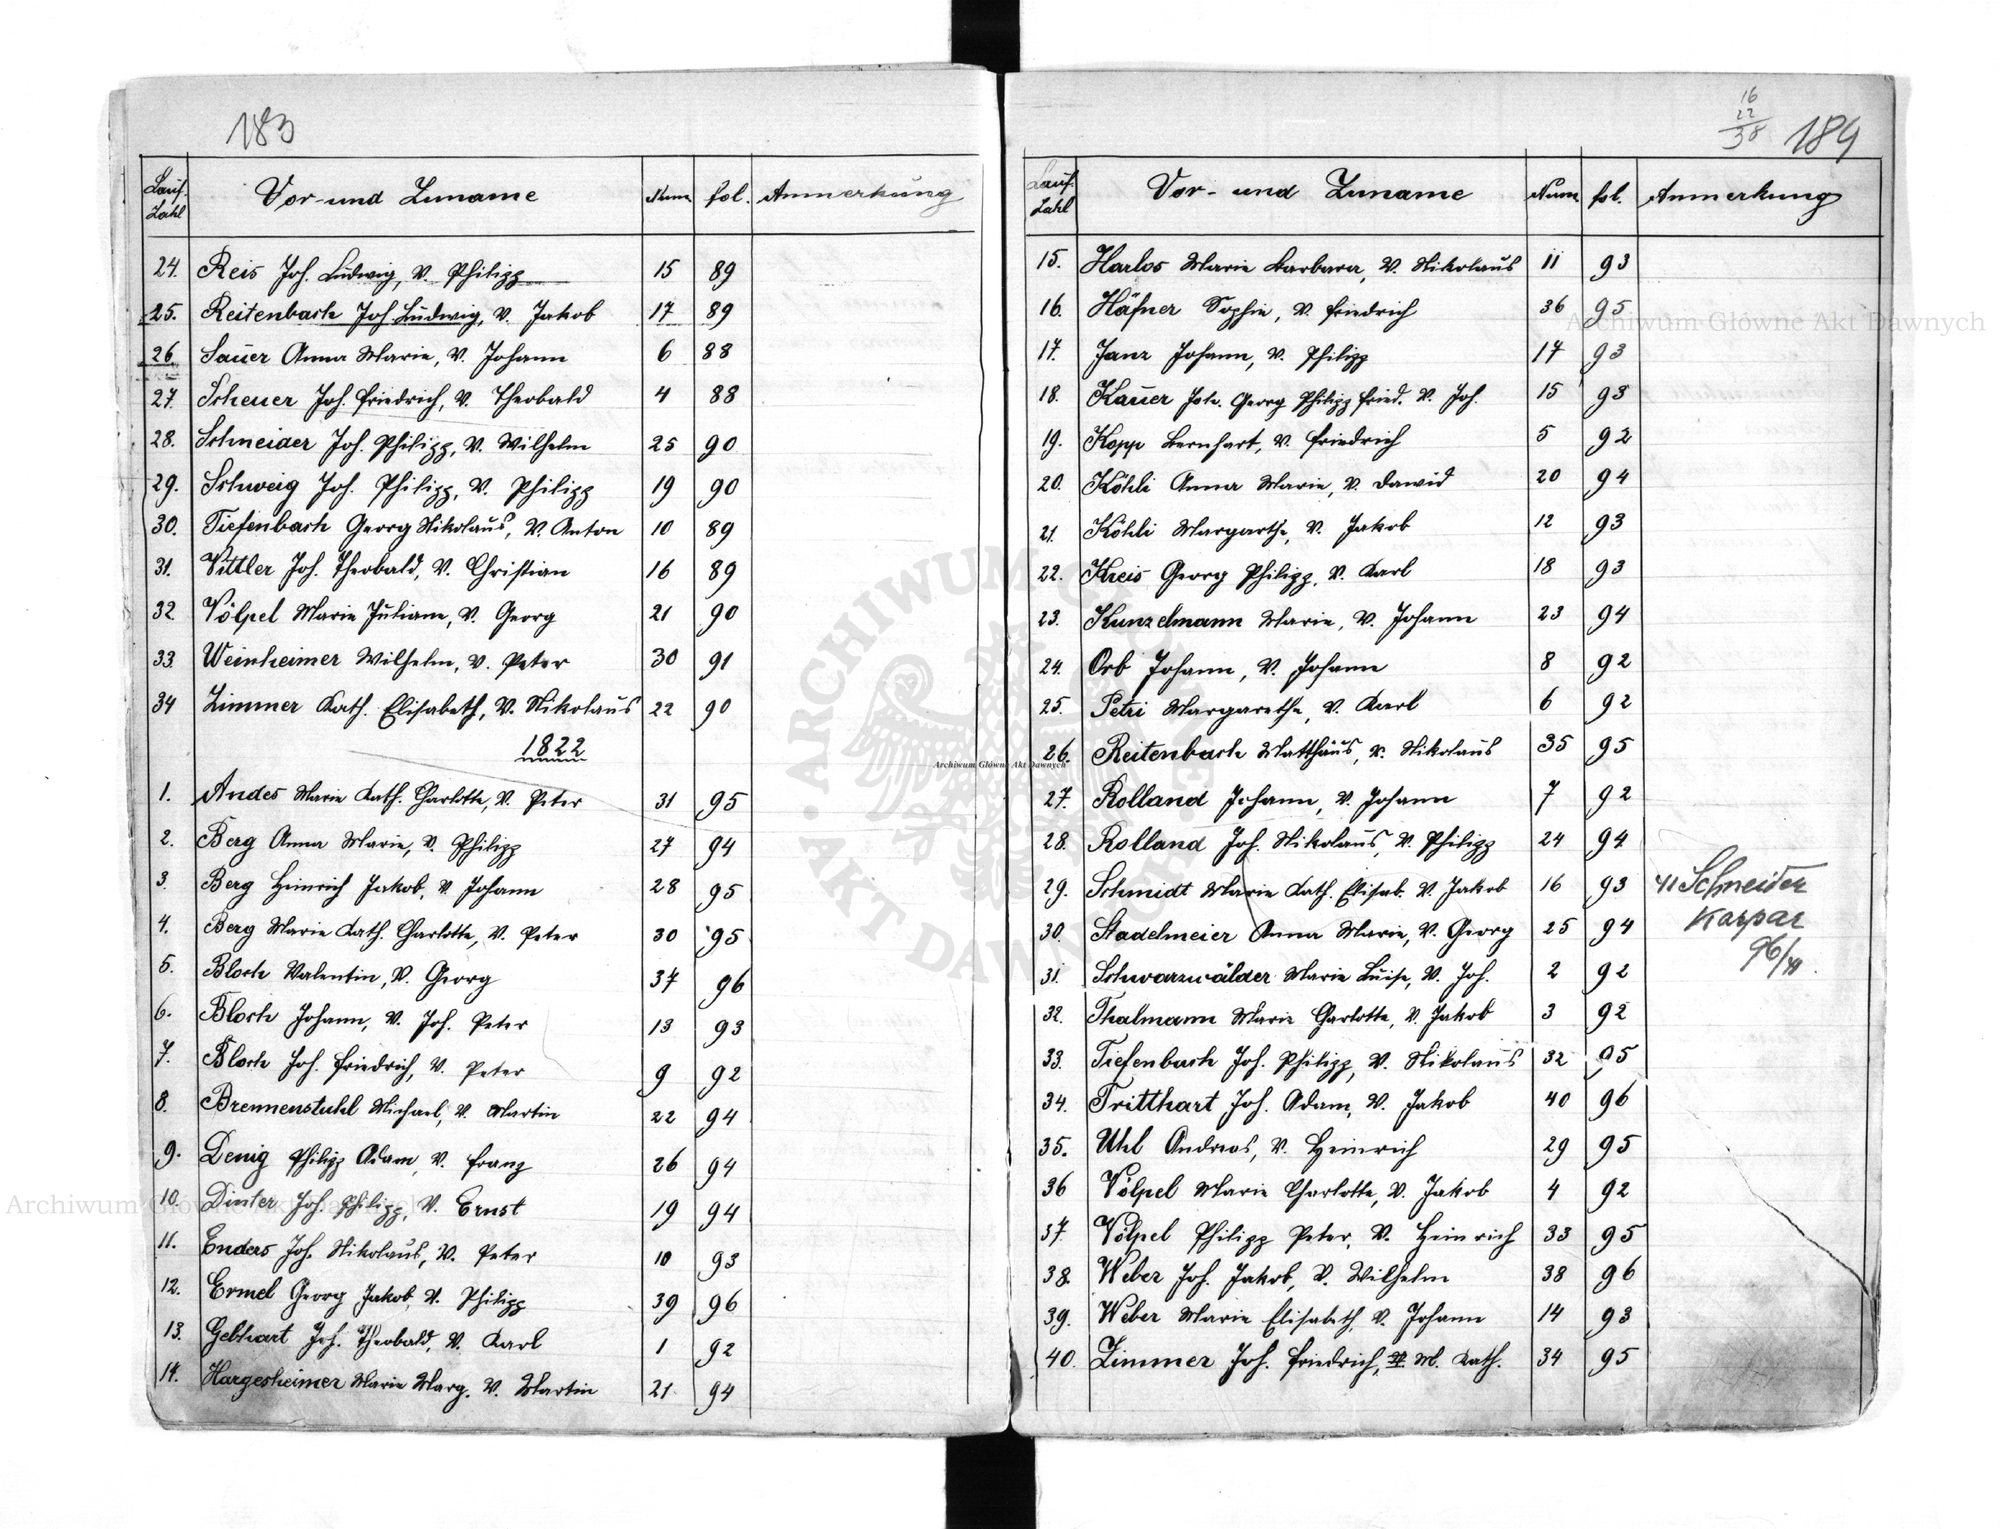 183
Lauf. Zahl Vor- und Zuname Num fol. Anmerkung
24. Reis Joh. Ludwig, V. Philipp 15 89
25. Reitenbach Joh Ludwig, V. Jakob 17 89
26 Sauer Anna Marie, V. Johann 6 88
27. Scheuer Joh. Friedrich, V. Theobald 4 88
28. Schneider Joh. Philipp, V. Wilhelm 25 90
29. Schweig Joh. Philipp, V. Philipp 19 90
30. Tiefenbach Georg Nikolaus, V. Anton 10 89
31. Vittler Joh. Theobald, V. Christian 16 89
32 Völpel Marie Juliane, V. Georg 21 90
33 Weinheimer Wilhelm, V. Peter 30 91
34 Zimmer Kath. Elisabeth, V. Nikolaus 22 90
1822
1. Andes Marie Kath. Charlotte, V. Peter 31 95
2. Berg Anna Marie, V. Philipp 27 94
3. Berg Heinrich Jakob, V. Johann 28 95
4. Berg Marie Kath. Charlotte, V. Peter 30 95
5. Bloch Valentin, V. Georg 37 96
6. Bloch Johann, V. Joh. Peter 13 93
7. Bloch Joh. Friedrich, V. Peter 9 92
8. Brennenstuhl Michael, V. Martin 22 94
9. Denig Philipp Adam, V. Franz 26 94
10. Dinter Joh. Philipp, V. Ernst 19 94
11. Enders Joh. Nikolaus, V. Peter 10 93
12. Ermel Georg Jakob, V. Philipp 39 96
13. Gebhart Joh. Theobald, V. Karl 1 92
14. Hargesheimer Marie Marg. V. Martin 21 94
16
22
38
184
Lauf. Zahl Vor- und Zuname Num fol. Anmerkung
15. Harlos Marie Barbara, V. Nikolaus 11 93
16. Häfner Sophie, V. Friedrich 36 95
17. Janz Johann, V. Philipp 17 93
18. Kauer Joh. Georg Philipp Fried. V. Joh. 15 93
19. Kopp Bernhart, V. Friedrich 5 92
20. Köhli Anna Marie, V. Dawid 20 94
21. Köhli Margarthe, V. Jakob 12 93
22. Kreis Georg Philipp, V. Karl 18 93
23. Kunzelmann Marie, V. Johann 23 94
24. Orb Johann, V. Johann 8 92
25. Petri Margarethe, V. Karl 6 92
26. Reitenbach Matthäus, V. Nikolaus 35 95
27. Rolland Johann, V. Johann 7 92
28. Rolland Joh. Nikolaus, V. Philipp 24 94
29. Schmidt Marie Kath. Elisab. V. Jakob 16 93 41 Schneider
Kaspar
96/41.
30. Stadelmeier Anna Marie, V. Georg 25 94
31. Schwarzwälder Marie Luise, V. Joh. 2 92
32. Thalmann Marie Charlotte, V. Jakob 3 92
33. Tiefenbach Joh. Philipp, V. Nikolaus 32 95
34. Tritthart Joh. Adam, V. Jakob 40 96
35. Uhl Andreas, V. Heinrich 29 95
36 Völpel Marie Charlotte, V. Jakob 4 92
37 Völpel Philipp Peter, V. Heinrich 33 95
38. Weber Joh. Jakob, V. Wilhelm 38 96
39. Weber Marie Elisabeth, V. Johann 14 93
40. Zimmer Joh. Friedrich, M. Kath. 34 95
ARCHIWUM GŁÓWNE AKT DAWNYCH
Archiwum Główne Akt Dawnych
Archiwum Główne Akt Dawnych
Archiwum Główne Akt Dawnych